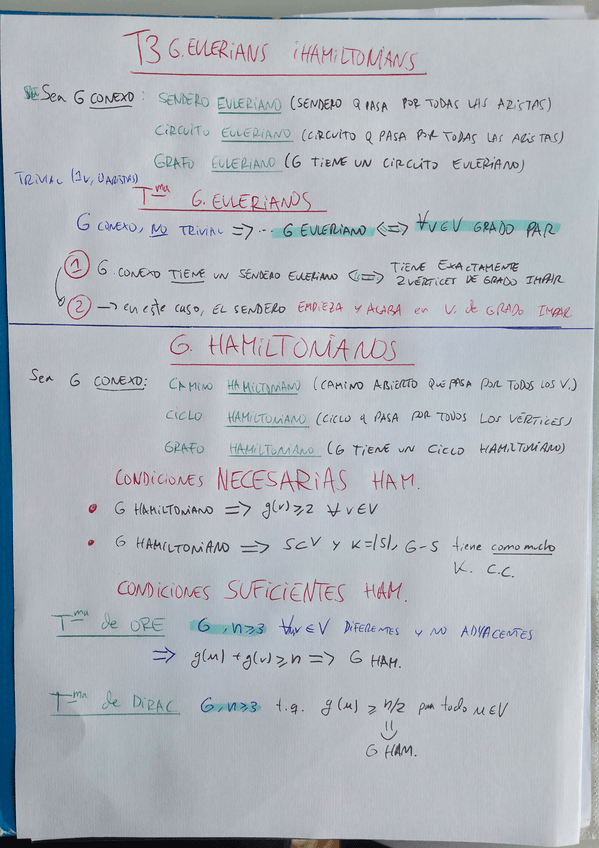 T3 G. EULERIANS i HAMILTONIANS
Sea G CONEXO: SENDERO EULERIANO (SENDERO Q PASA POR TODAS LAS ARISTAS)
CIRCUITO EULERIANO (CIRCUITO Q PASA POR TODAS LAS ARISTAS)
GRAFO EULERIANO (G TIENE UN CIRCUITO EULERIANO)
TRIVIAL (1v, 0 ARISTAS)
Tma G. EULERIANOS
G CONEXO, NO TRIVIAL => ·· G EULERIANO <=> ∀v∈V GRADO PAR
① G. CONEXO TIENE UN SENDERO EULERIANO <=> TIENE EXACTAMENTE 2 VÉRTICES DE GRADO IMPAR
② → en este caso, EL SENDERO EMPIEZA Y ACABA en V. de GRADO IMPAR
G. HAMILTONIANOS
Sea G CONEXO: CAMINO HAMILTONIANO (CAMINO ABIERTO QUE PASA POR TODOS LOS V.)
CICLO HAMILTONIANO (CICLO Q PASA POR TODOS LOS VÉRTICES)
GRAFO HAMILTONIANO (G TIENE UN CICLO HAMILTONIANO)
CONDICIONES NECESARIAS HAM.
• G HAMILTONIANO => g(v)≥2 ∀v∈V
• G HAMILTONIANO => S⊂V Y K=|S|, G-S tiene como mucho
K. C.C.
CONDICIONES SUFICIENTES HAM.
Tma de ORE G, n≥3 ∀u,v∈V DIFERENTES Y NO ADYACENTES
=> g(u)+g(v)≥n => G HAM.
Tma de DIRAC G, n≥3 t.q. g(u) ≥ n/2 para todo u∈V
=>
G HAM.